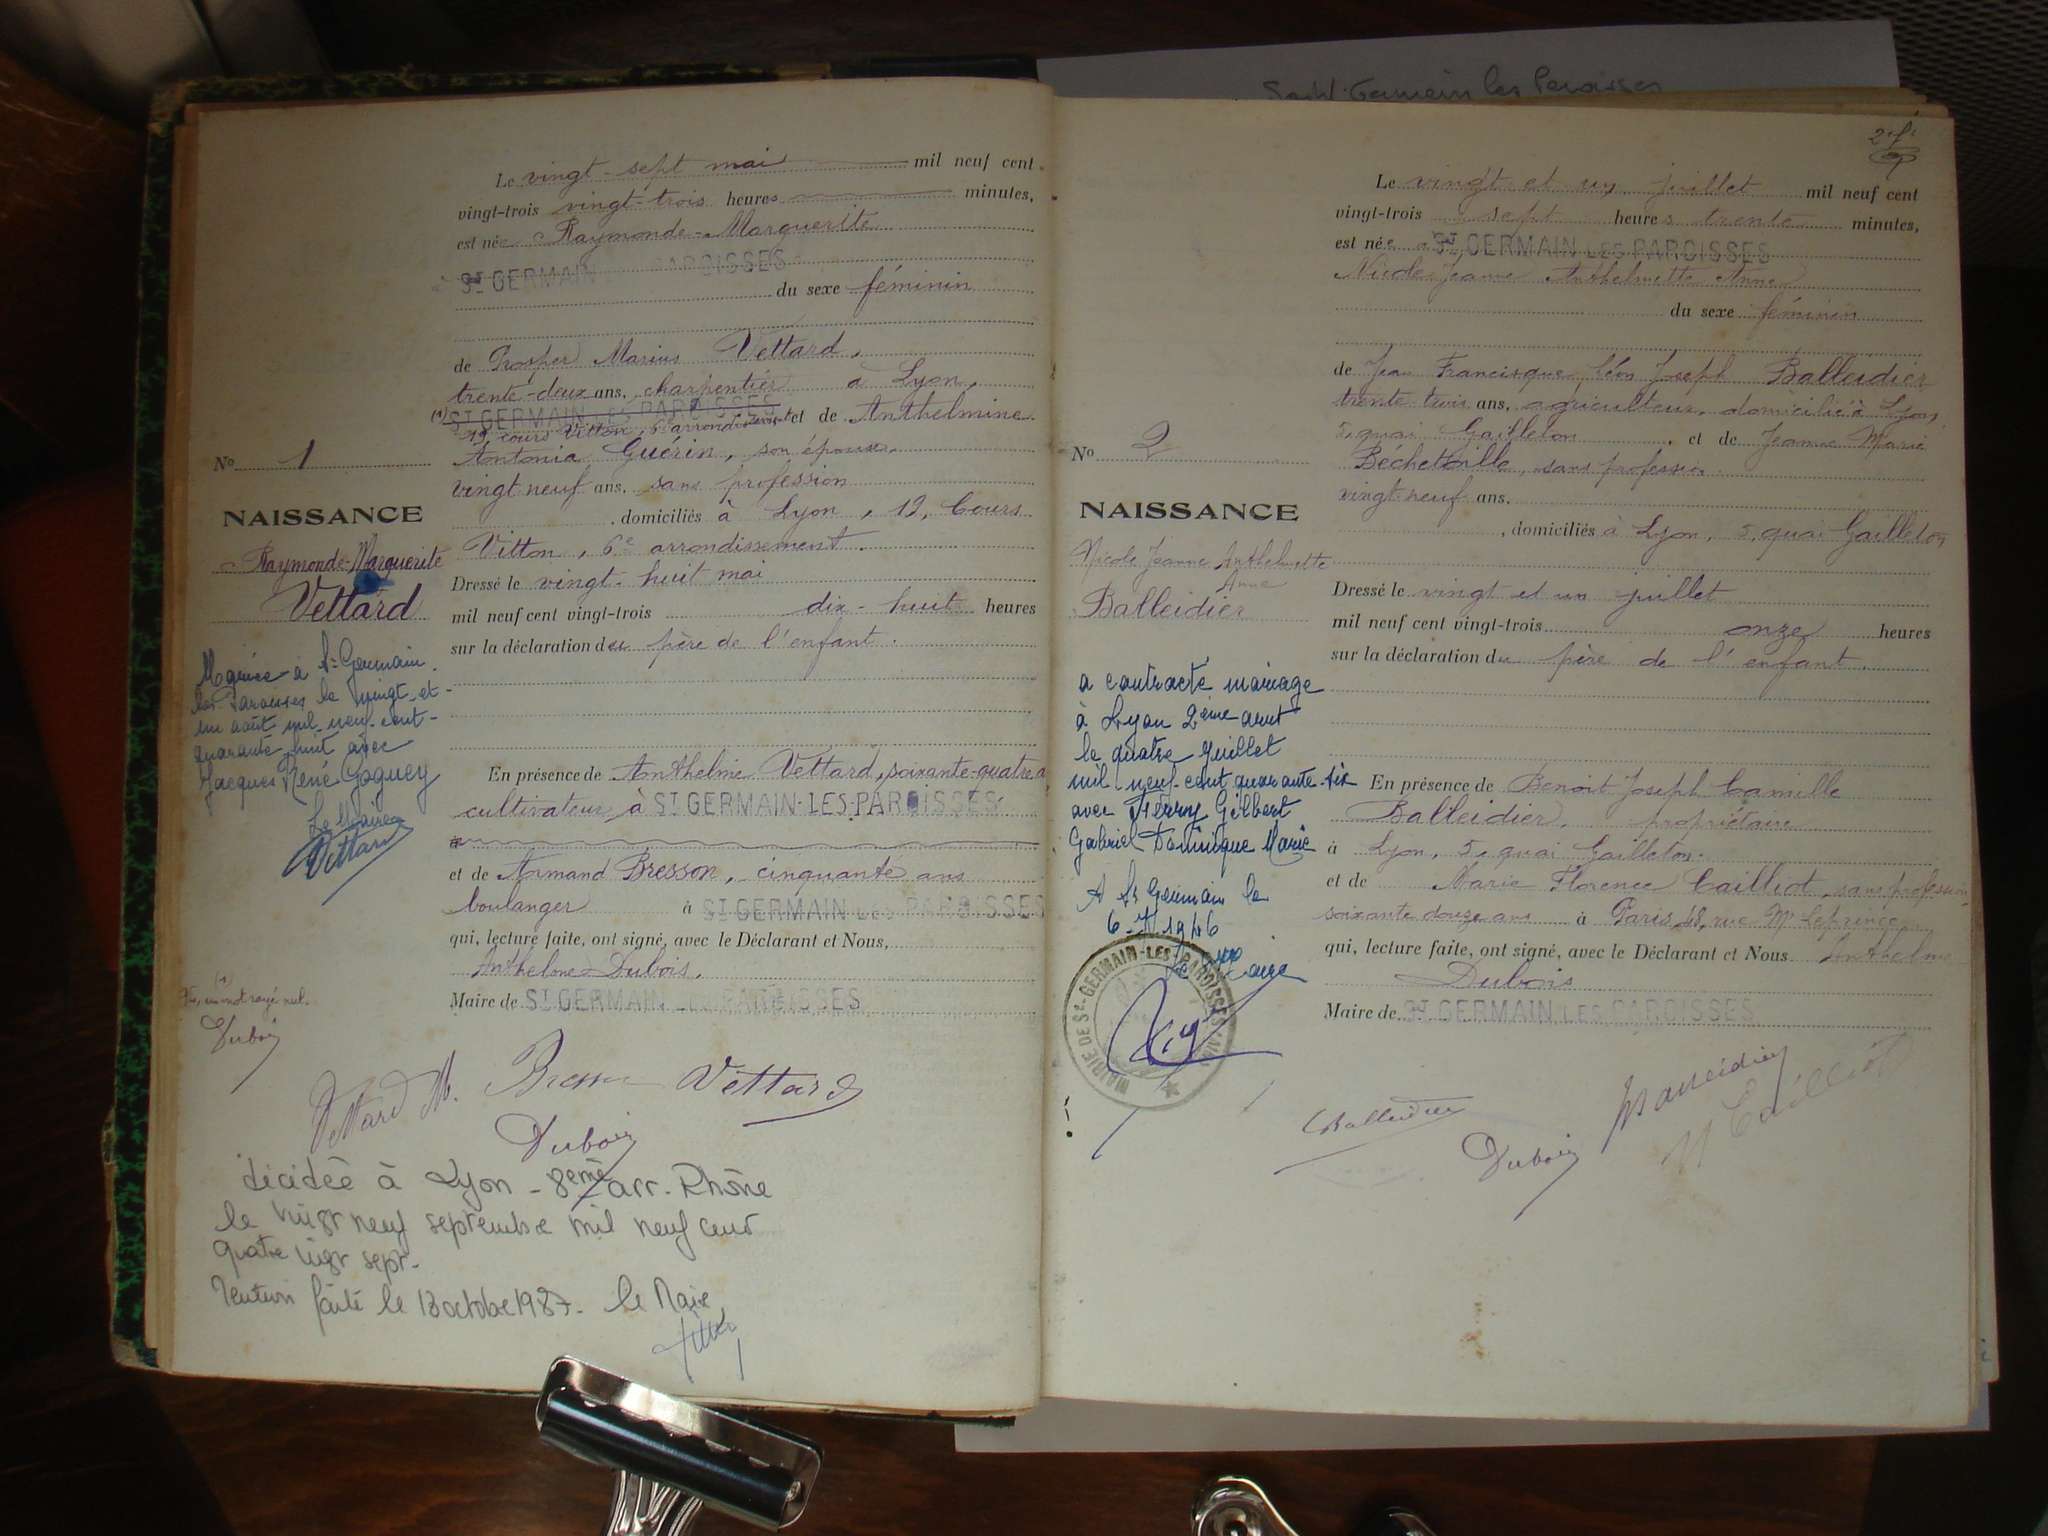 Saint Germain les Paroisses
Le vingt-sept mai mil neuf cent
vingt-trois vingt-trois heures minutes,
est née Raymonde-Marguerite
à ST GERMAIN LES PAROISSES
du sexe féminin
de Prosper Marius Vettard,
trente-deux ans, charpentier à Lyon,
(1) ST GERMAIN-LES-PAROISSES
12, cours Vitton, 6e arrondissement et de Anthelmine
Antonia Guérin, son épouse,
vingt neuf ans, sans profession
, domiciliés à Lyon, 12, Cours
Vitton, 6e arrondissement.
Dressé le vingt-huit mai
mil neuf cent vingt-trois dix-huit heures
sur la déclaration du père de l'enfant.
En présence de Anthelme Vettard, soixante-quatre a
cultivateur, à ST GERMAIN-LES-PAROISSES
et de Armand Bresson, cinquante ans
boulanger à ST GERMAIN LES PAROISSES
qui, lecture faite, ont signé, avec le Déclarant et Nous,
Anthelme Dubois.
Maire de ST GERMAIN LES PAROISSES
No 1
NAISSANCE
Raymonde-Marguerite
Vettard
Mariée à St Germain
les Paroisses le vingt et
un août mil neuf cent
quarante huit avec
Jacques René Goguey
Le Maire
Vettard
(1)
un mot rayé nul.
Dubois
Vettard M. Bresson Vettard
Dubois
décédée à Lyon - 8ème arr. Rhône
le vingt neuf septembre mil neuf cent
quatre vingt sept.
Mention faite le 13 octobre 1987. le Maire,
2 f.
Le vingt et un juillet mil neuf cent
vingt-trois sept heures trente minutes,
est née à ST GERMAIN LES PAROISSES
Nicole Jeanne Anthelmette Anne
du sexe féminin
de Jean Francisque Léon Joseph Balleidier
trente trois ans, agriculteur, domicilié à Lyon,
5, quai Gailleton, et de Jeanne Marie
Béchetoille, sans profession
vingt-neuf ans.
, domiciliés à Lyon, 5 quai Gailleton
Dressé le vingt et un juillet
mil neuf cent vingt-trois onze heures
sur la déclaration du père de l'enfant.
En présence de Benoit Joseph Camille
Balleidier, propriétaire
à Lyon, 5, quai Gailleton.
et de Marie Florence Cailliot, sans profession
soixante douze ans à Paris, 48, rue Mr leprince
qui, lecture faite, ont signé, avec le Déclarant et Nous Anthelme
Dubois
Maire de ST GERMAIN LES PAROISSES
No 2
NAISSANCE
Nicole Jeanne Anthelmette
Anne
Balleidier
a contracté mariage
à Lyon 2ème arrt
le quatre juillet
mil neuf cent quarante-six
avec Ferry Gilbert
Gabriel Dominique Marie
A St Germain le
6-7-1946
Le Maire
MAIRIE DE ST-GERMAIN-LES-PAROISSES (AIN)
Balleidier
Dubois
Balleidier
M Cailliot